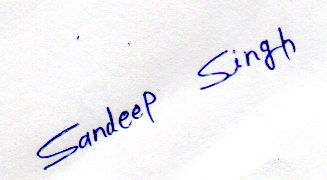 Sandeep Singh